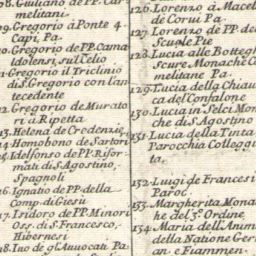 98. Giuliano de' PP. Car-
melitani.
99. Gregorio à Ponte 4.
Capi, Pa.
Gregorio de PP. Cama-
ldolensi, sul Celio
Gregorio il Triclinio
di S. Gregorio con l'an-
tecedente
Gregorio de Murato-
ri à Ripetta
13. Helena de Credenzie.
14. Homobono de Sartori
15. Idelfonso de PP. Rifor-
mati di S. Agostino,
Spagnoli
16. Ignatio de PP. della
Comp. di Giesù
17. Isidoro de PP. Minori
Oss. di S. Francesco,
Hibernesi
18. Iuo de gl'Auuocati Pa.
126. Lorenzo à Macel
de Corui Pa.
127. Lorenzo de PP. de
Scuole Pie
128. Lucia alle Botteghe
Scure Monache Ca
melitane Pa.
129. Lucia della Chiau
ca del Confalone
130. Lucia in Selci Mon
che di S. Agostino
131. Lucia della Tinta
Parocchia Collegia
ta.
132. Luigi de Francesi
Paroc.
133. Margherita Mona
che del 3º Ordine
154. Maria dell'Anim
della Natione Ger
an. e Fiammen.